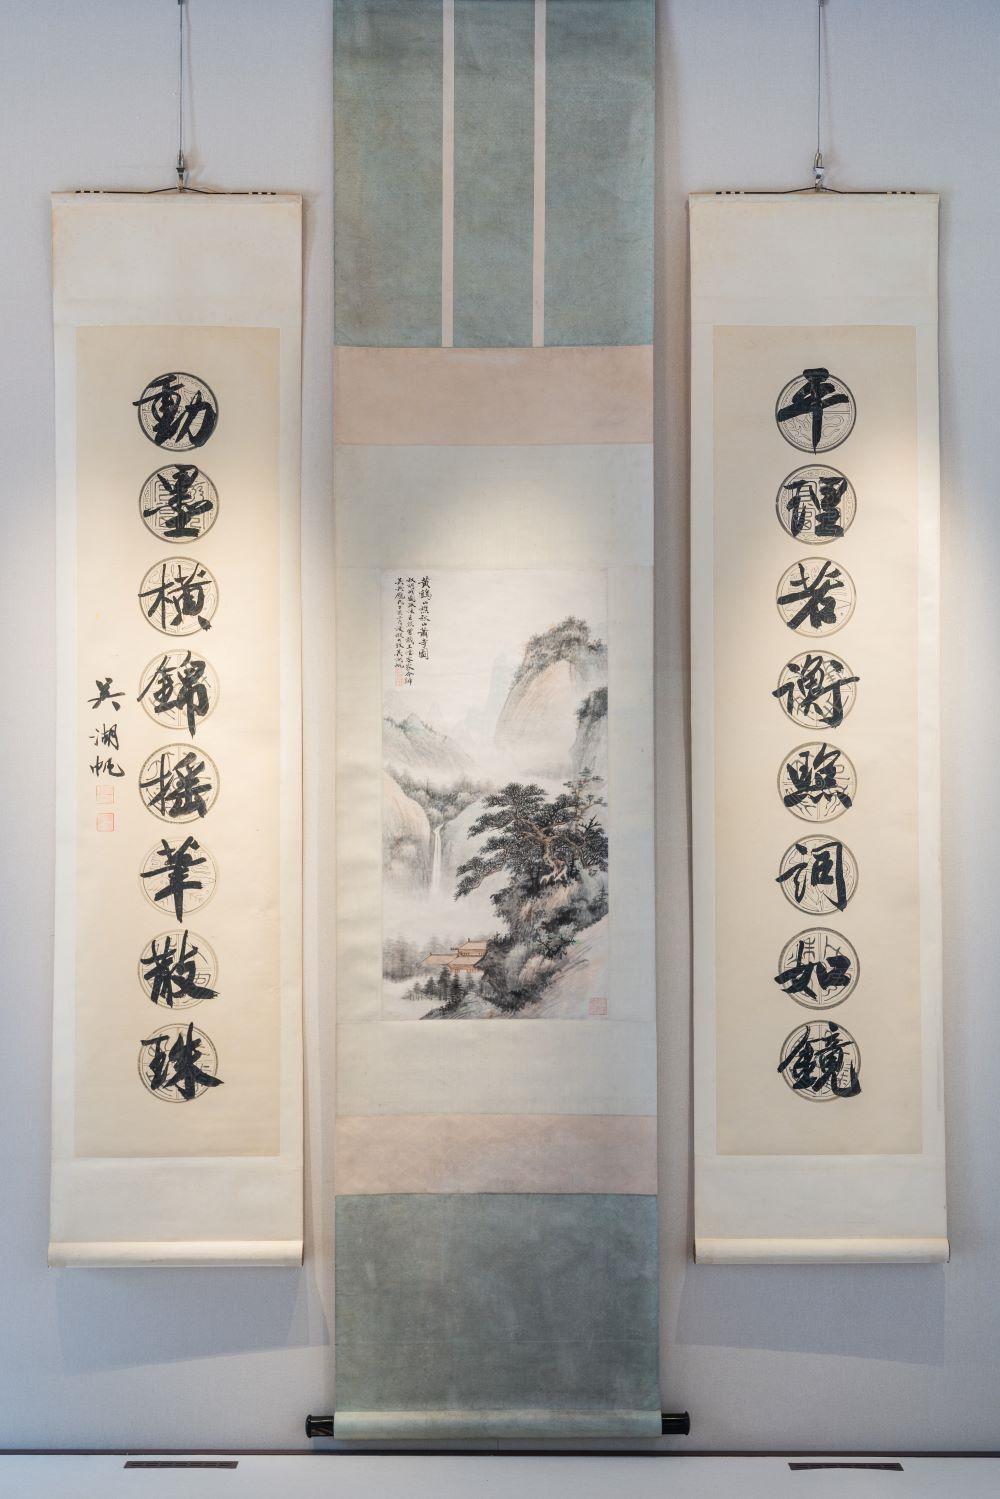 平理若衡照詞如鏡
動墨橫錦搖筆散珠
吳湖帆
黃鶴山樵秋山蕭寺圖